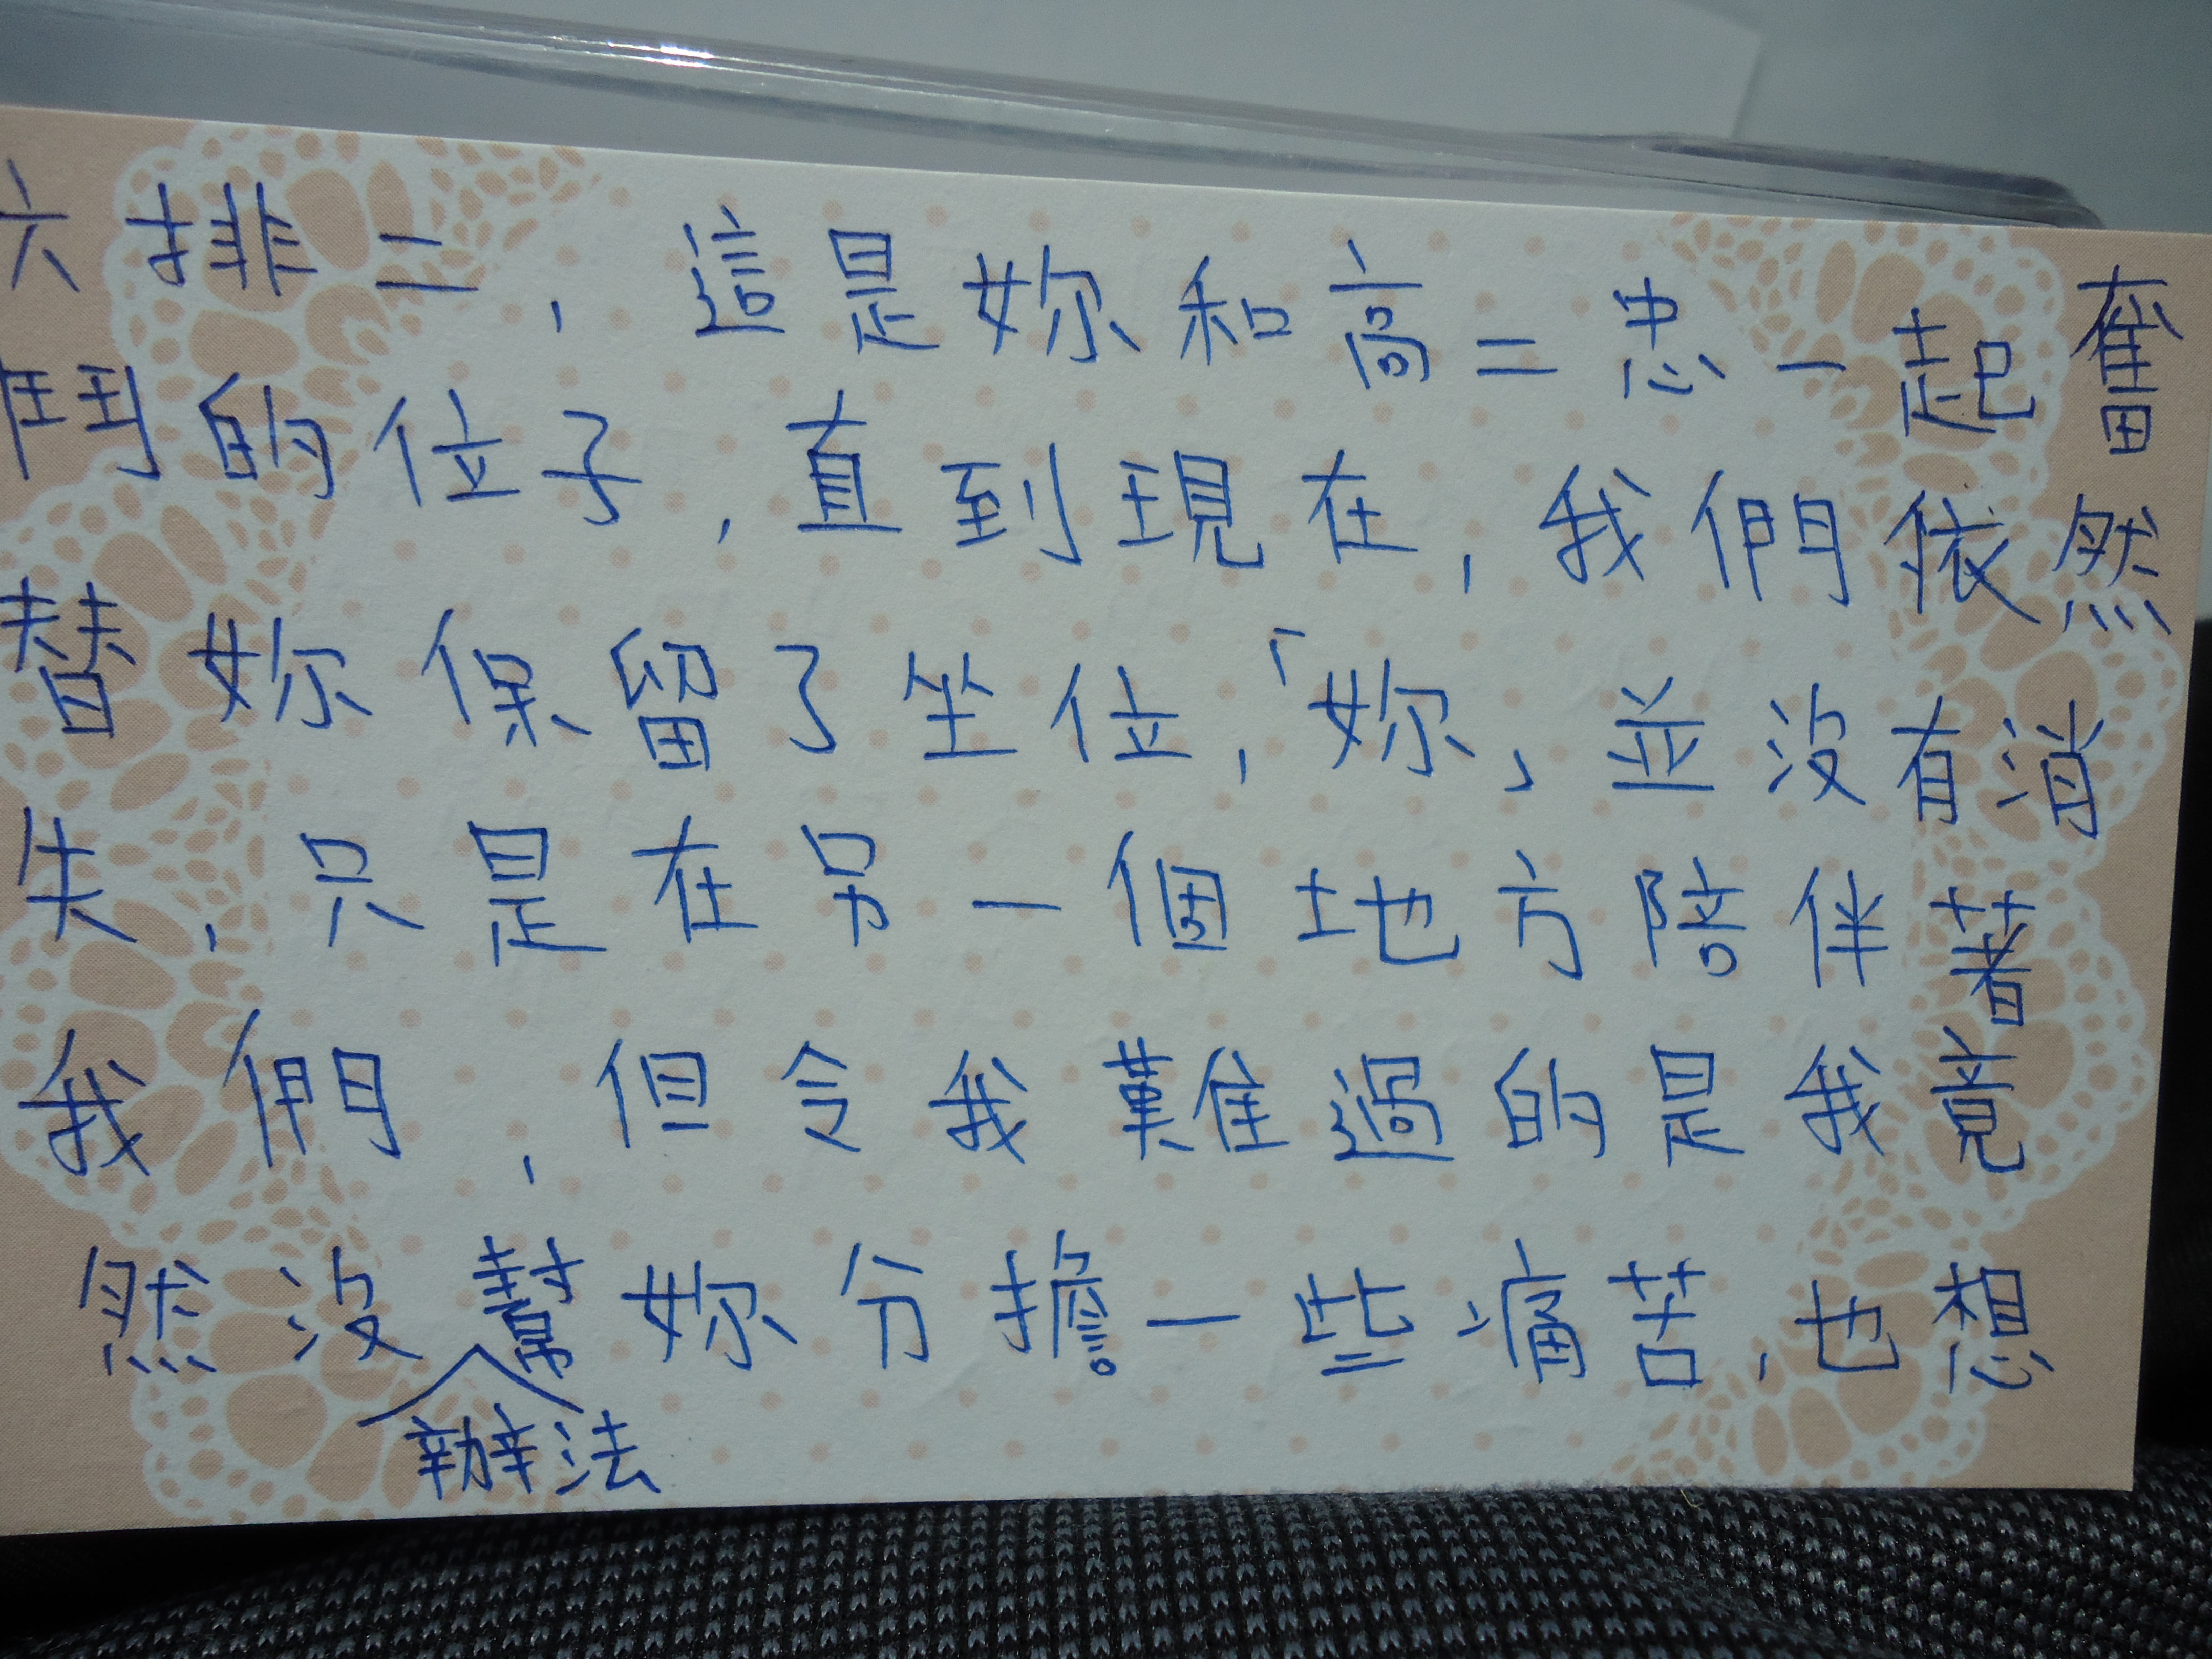 六排二，這是妳和高二忠一起奮
鬥的位子，直到現在，我們依然
替妳保留了坐位，「妳」並沒有消
失，只是在另一個地方陪伴著
我們，但令我難過的是我竟
然沒辦法幫妳分擔一些痛苦，也想